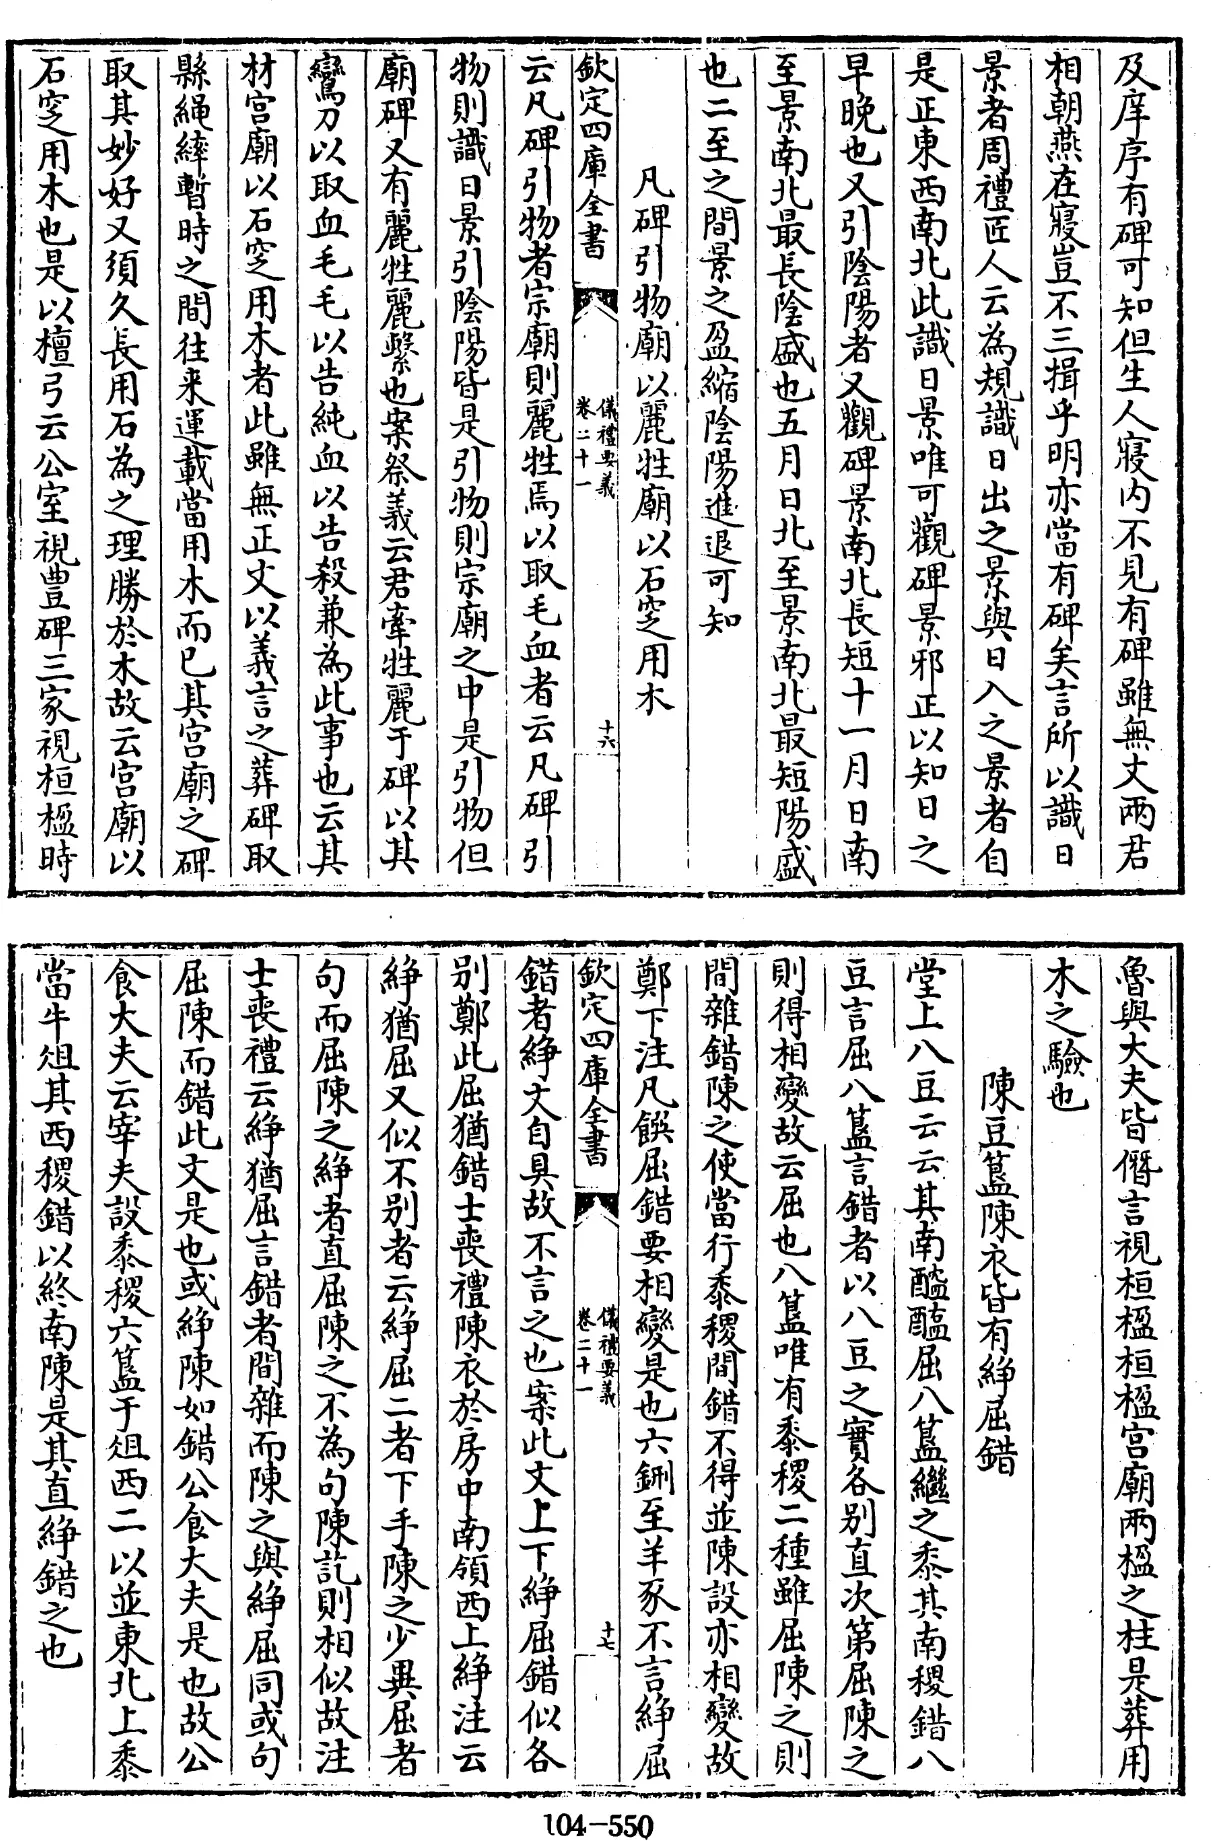 及庠序有碑可知但生人寢内不見有碑雖無文兩君
相朝燕在寢豈不三揖乎明亦當有碑矣言所以識日
景者周禮匠人云為規識日出之景與日入之景者自
是正東西南北此識日景唯可觀碑景邪正以知日之
早晚也又引陰陽者又觀碑景南北長短十一月日南
至景南北最長陰盛也五月日北至景南北最短陽盛
也二至之間景之盈縮陰陽進退可知
凡碑引物廟以麗牲廟以石窆用木
欽定四庫全書
儀禮要義
卷二十一
十六
云凡碑引物者宗廟則麗牲焉以取毛血者云凡碑引
物則識日景引陰陽皆是引物則宗廟之中是引物但
廟碑又有麗牲麗繫也案祭義云君牽牲麗于碑以其
鸞刀以取血毛毛以告純血以告殺兼為此事也云其
材宮廟以石窆用木者此雖無正文以義言之葬碑取
縣繩繂暫時之間往来運載當用木而已其宮廟之碑
取其妙好又須久長用石為之理勝於木故云宮廟以
石窆用木也是以檀弓云公室視豐碑三家視桓楹時
魯與大夫皆僭言視桓楹桓楹宮廟兩楹之柱是葬用
木之驗也
陳豆簋陳衣皆有綪屈錯
堂上八豆云云其南醯醢屈八簋繼之黍其南稷錯八
豆言屈八簋言錯者以八豆之實各别直次第屈陳之
則得相變故云屈也八簋唯有黍稷二種雖屈陳之則
間雜錯陳之使當行黍稷間錯不得並陳設亦相變故
鄭下注凡饌屈錯要相變是也六鉶至羊豕不言綪屈
欽定四庫全書
儀禮要義
卷二十一
十七
錯者綪文自具故不言之也案此文上下綪屈錯似各
别鄭此屈猶錯士喪禮陳衣於房中南領西上綪注云
綪猶屈又似不别者云綪屈二者下手陳之少異屈者
句而屈陳之綪者直屈陳之不為句陳訖則相似故注
士喪禮云綪猶屈言錯者間雜而陳之與綪屈同或句
屈陳而錯此文是也或綪陳如錯公食大夫是也故公
食大夫云宰夫設黍稷六簋于俎西二以並東北上黍
當牛俎其西稷錯以終南陳是其直綪錯之也
104-550